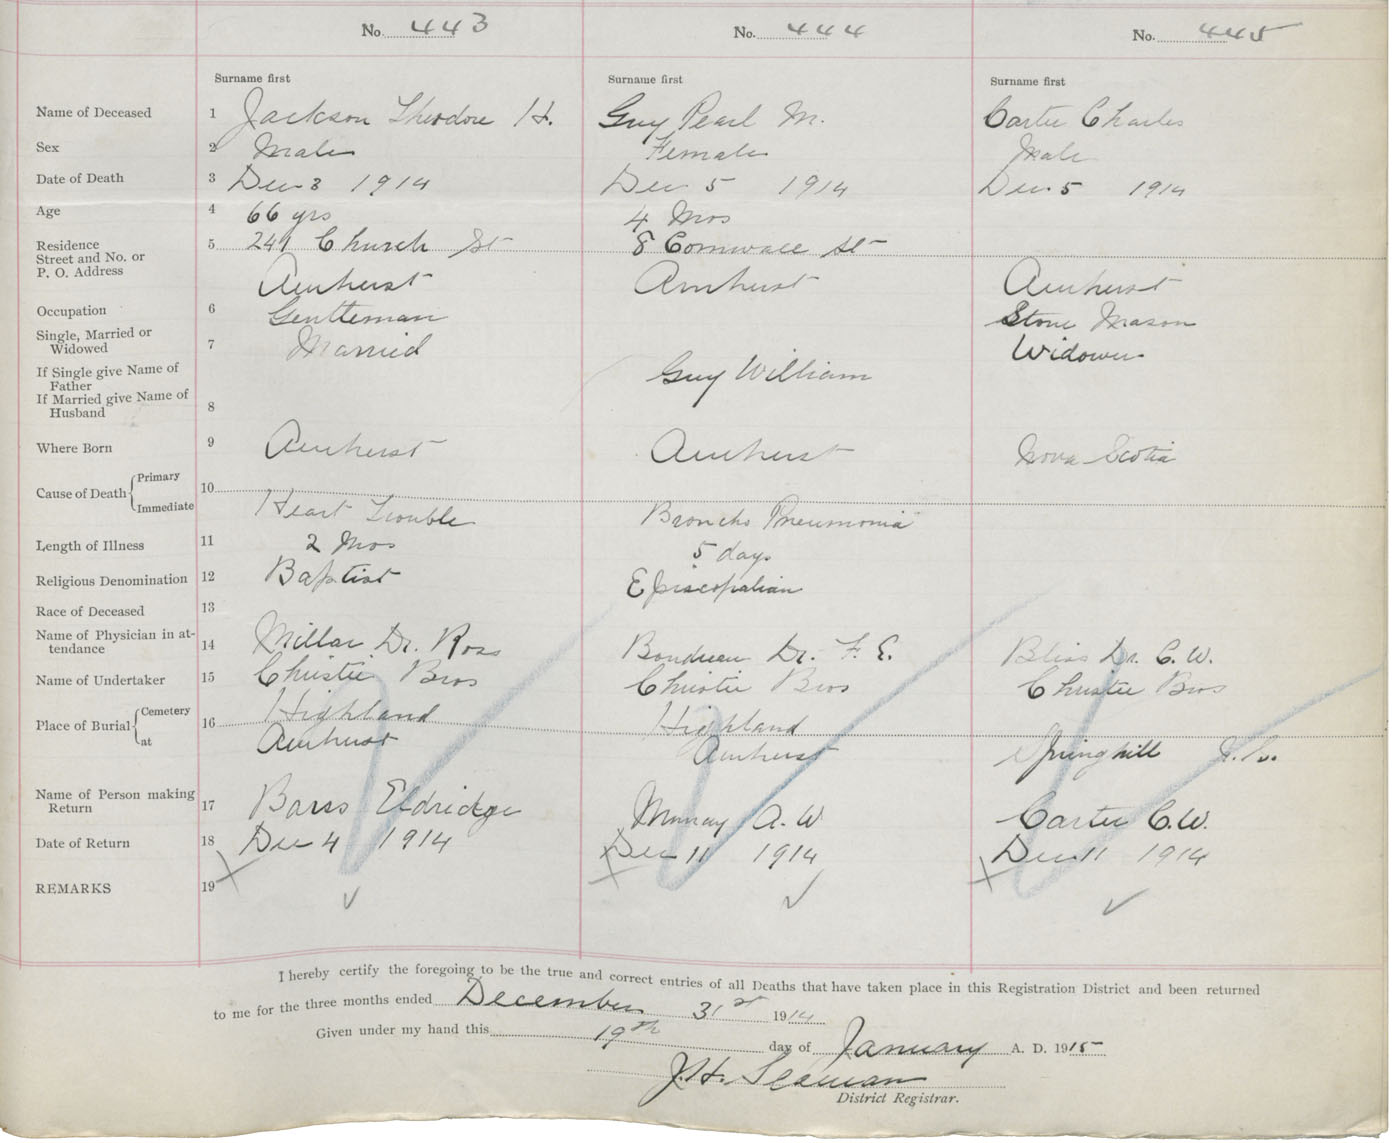 No. 443 No. 444 No. 445
Surname first Surname first Surname first
Name of Deceased 1 Jackson Theodore H. Guy Pearl M. Carter Charles
Sex 2 Male Female Male
Date of Death 3 Dec 3 1914 Dec 5 1914 Dec. 5 1914
Age 4 66 yrs 4 Mos
Residence 5 241 Church St 8 Cornwall St
Street and No. or
P. O. Address Amherst Amherst Amherst
Occupation 6 Gentleman Stone Mason
Single, Married or
Widowed 7 Married Widower
If Single give Name of
Father Guy William
If Married give Name of
Husband 8
Where Born 9 Amherst Amherst Nova Scotia
Cause of Death { Primary 10
Immediate Heart Trouble Broncho Pneumonia
Length of Illness 11 2 Mos 5 days
Religious Denomination 12 Baptist Episcopalian
Race of Deceased 13
Name of Physician in at-
tendance 14 Millar Dr. Ross Dr. F. E. Bliss Dr. C. W.
Name of Undertaker 15 Christie Bros Christie Bros Christie Bros
Place of Burial { Cemetery 16 Highland Highland
at Amherst Amherst Springhill
Name of Person making
Return 17 Barss Eldridge Murray A. W Carter C. W.
Date of Return 18 Dec 4 1914 Dec 11 1914 Dec. 11 1914
REMARKS 19
I hereby certify the foregoing to be the true and correct entries of all Deaths that have taken place in this Registration District and been returned
to me for the three months ended December 31st 1914
Given under my hand this 19th day of January A. D. 1915
J. H. Seaman
District Registrar.